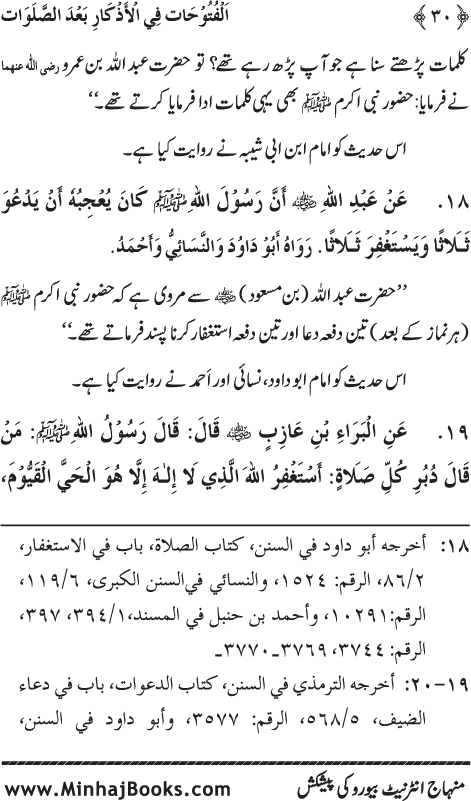 ﴿٣٠﴾ اَلْفُتُوْحَات فِي الْأَذْكَارِ بَعْدَ الصَّلَوَات
کلمات پڑھتے سنا ہے جو آپ پڑھ رہے تھے؟ تو حضرت عبد اللہ بن عمرو رضی اللہ عنهما
نے فرمایا: حضور نبی اکرم ﷺ بھی یہی کلمات ادا فرمایا کرتے تھے۔‘‘
اس حدیث کو امام ابن ابی شیبہ نے روایت کیا ہے۔
١٨. عَنْ عَبْدِ اللهِ رضی اللہ عنہ أَنَّ رَسُوْلَ اللهِ ﷺ كَانَ يُعْجِبُهُ أَنْ يَدْعُوَ
ثَـلَاثًا وَيَسْتَغْفِرَ ثَـلَاثًا. رَوَاهُ أَبُوْ دَاوُدَ وَالنَّسَائِيُّ وَأَحْمَدُ.
’’حضرت عبد اللہ (بن مسعود) رضی اللہ عنہ سے مروی ہے کہ حضور نبی اکرم ﷺ
(ہر نماز کے بعد) تین دفعہ دعا اور تین دفعہ استغفار کرنا پسند فرماتے تھے۔‘‘
اس حدیث کو امام ابو داود، نسائی اور اَحمد نے روایت کیا ہے۔
١٩. عَنِ الْبَرَاءِ بْنِ عَازِبٍ رضی اللہ عنہ قَالَ: قَالَ رَسُوْلُ اللهِ ﷺ: مَنْ
قَالَ دُبُرَ كُلِّ صَلَاةٍ: أَسْتَغْفِرُ اللهَ الَّذِي لَا إِلٰـهَ إِلَّا هُوَ الْحَيَّ الْقَيُّوْمَ،
١٨: أخرجه أبو داود في السنن، كتاب الصلاة، باب في الاستغفار،
٨٦/٢، الرقم: ١٥٢٤، والنسائي في السنن الكبرى، ١١٩/٦،
الرقم: ١٠٢٩١، وأحمد بن حنبل في المسند، ٣٩٤/١، ٣٩٧،
الرقم: ٣٧٤٤، ٣٧٦٩ـ٣٧٧٠ـ
١٩-٢٠: أخرجه الترمذي في السنن، كتاب الدعوات، باب في دعاء
الضيف، ٥٦٨/٥، الرقم: ٣٥٧٧، وأبو داود في السنن،
منہاج انٹرنیٹ بیورو کی پیشکش www.MinhajBooks.com